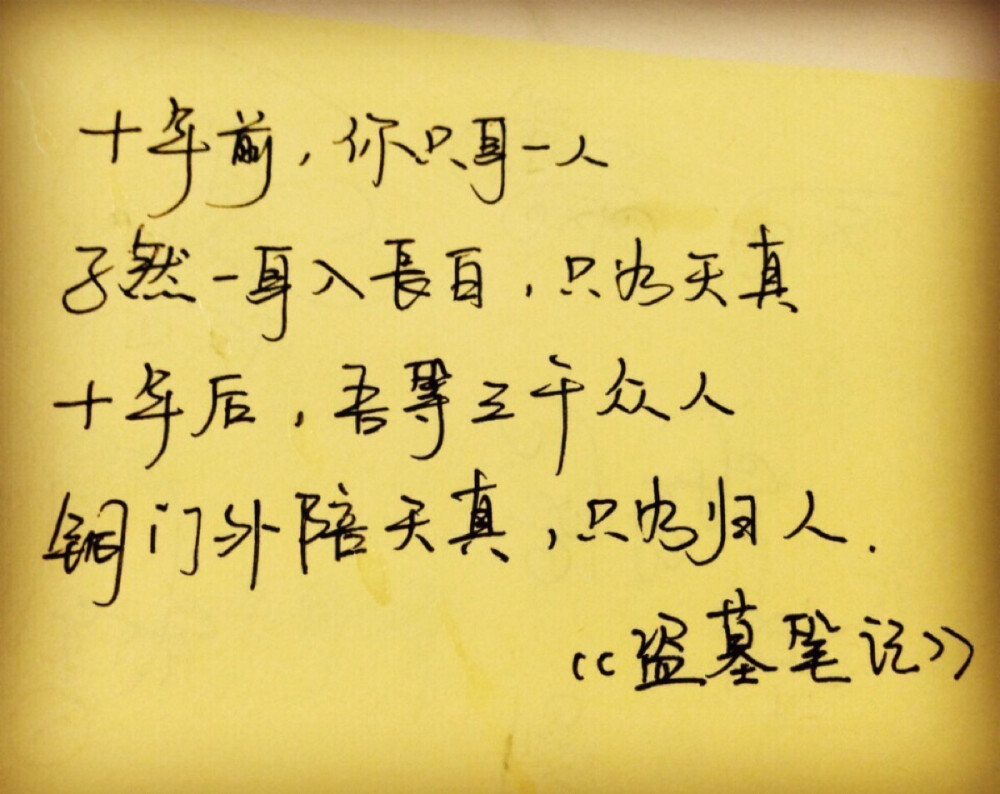 十年前,你只身一人
孑然一身入長白,只为天真
十年后,吾等三千众人
铜门外陪天真,只为归人.
《盗墓笔记》